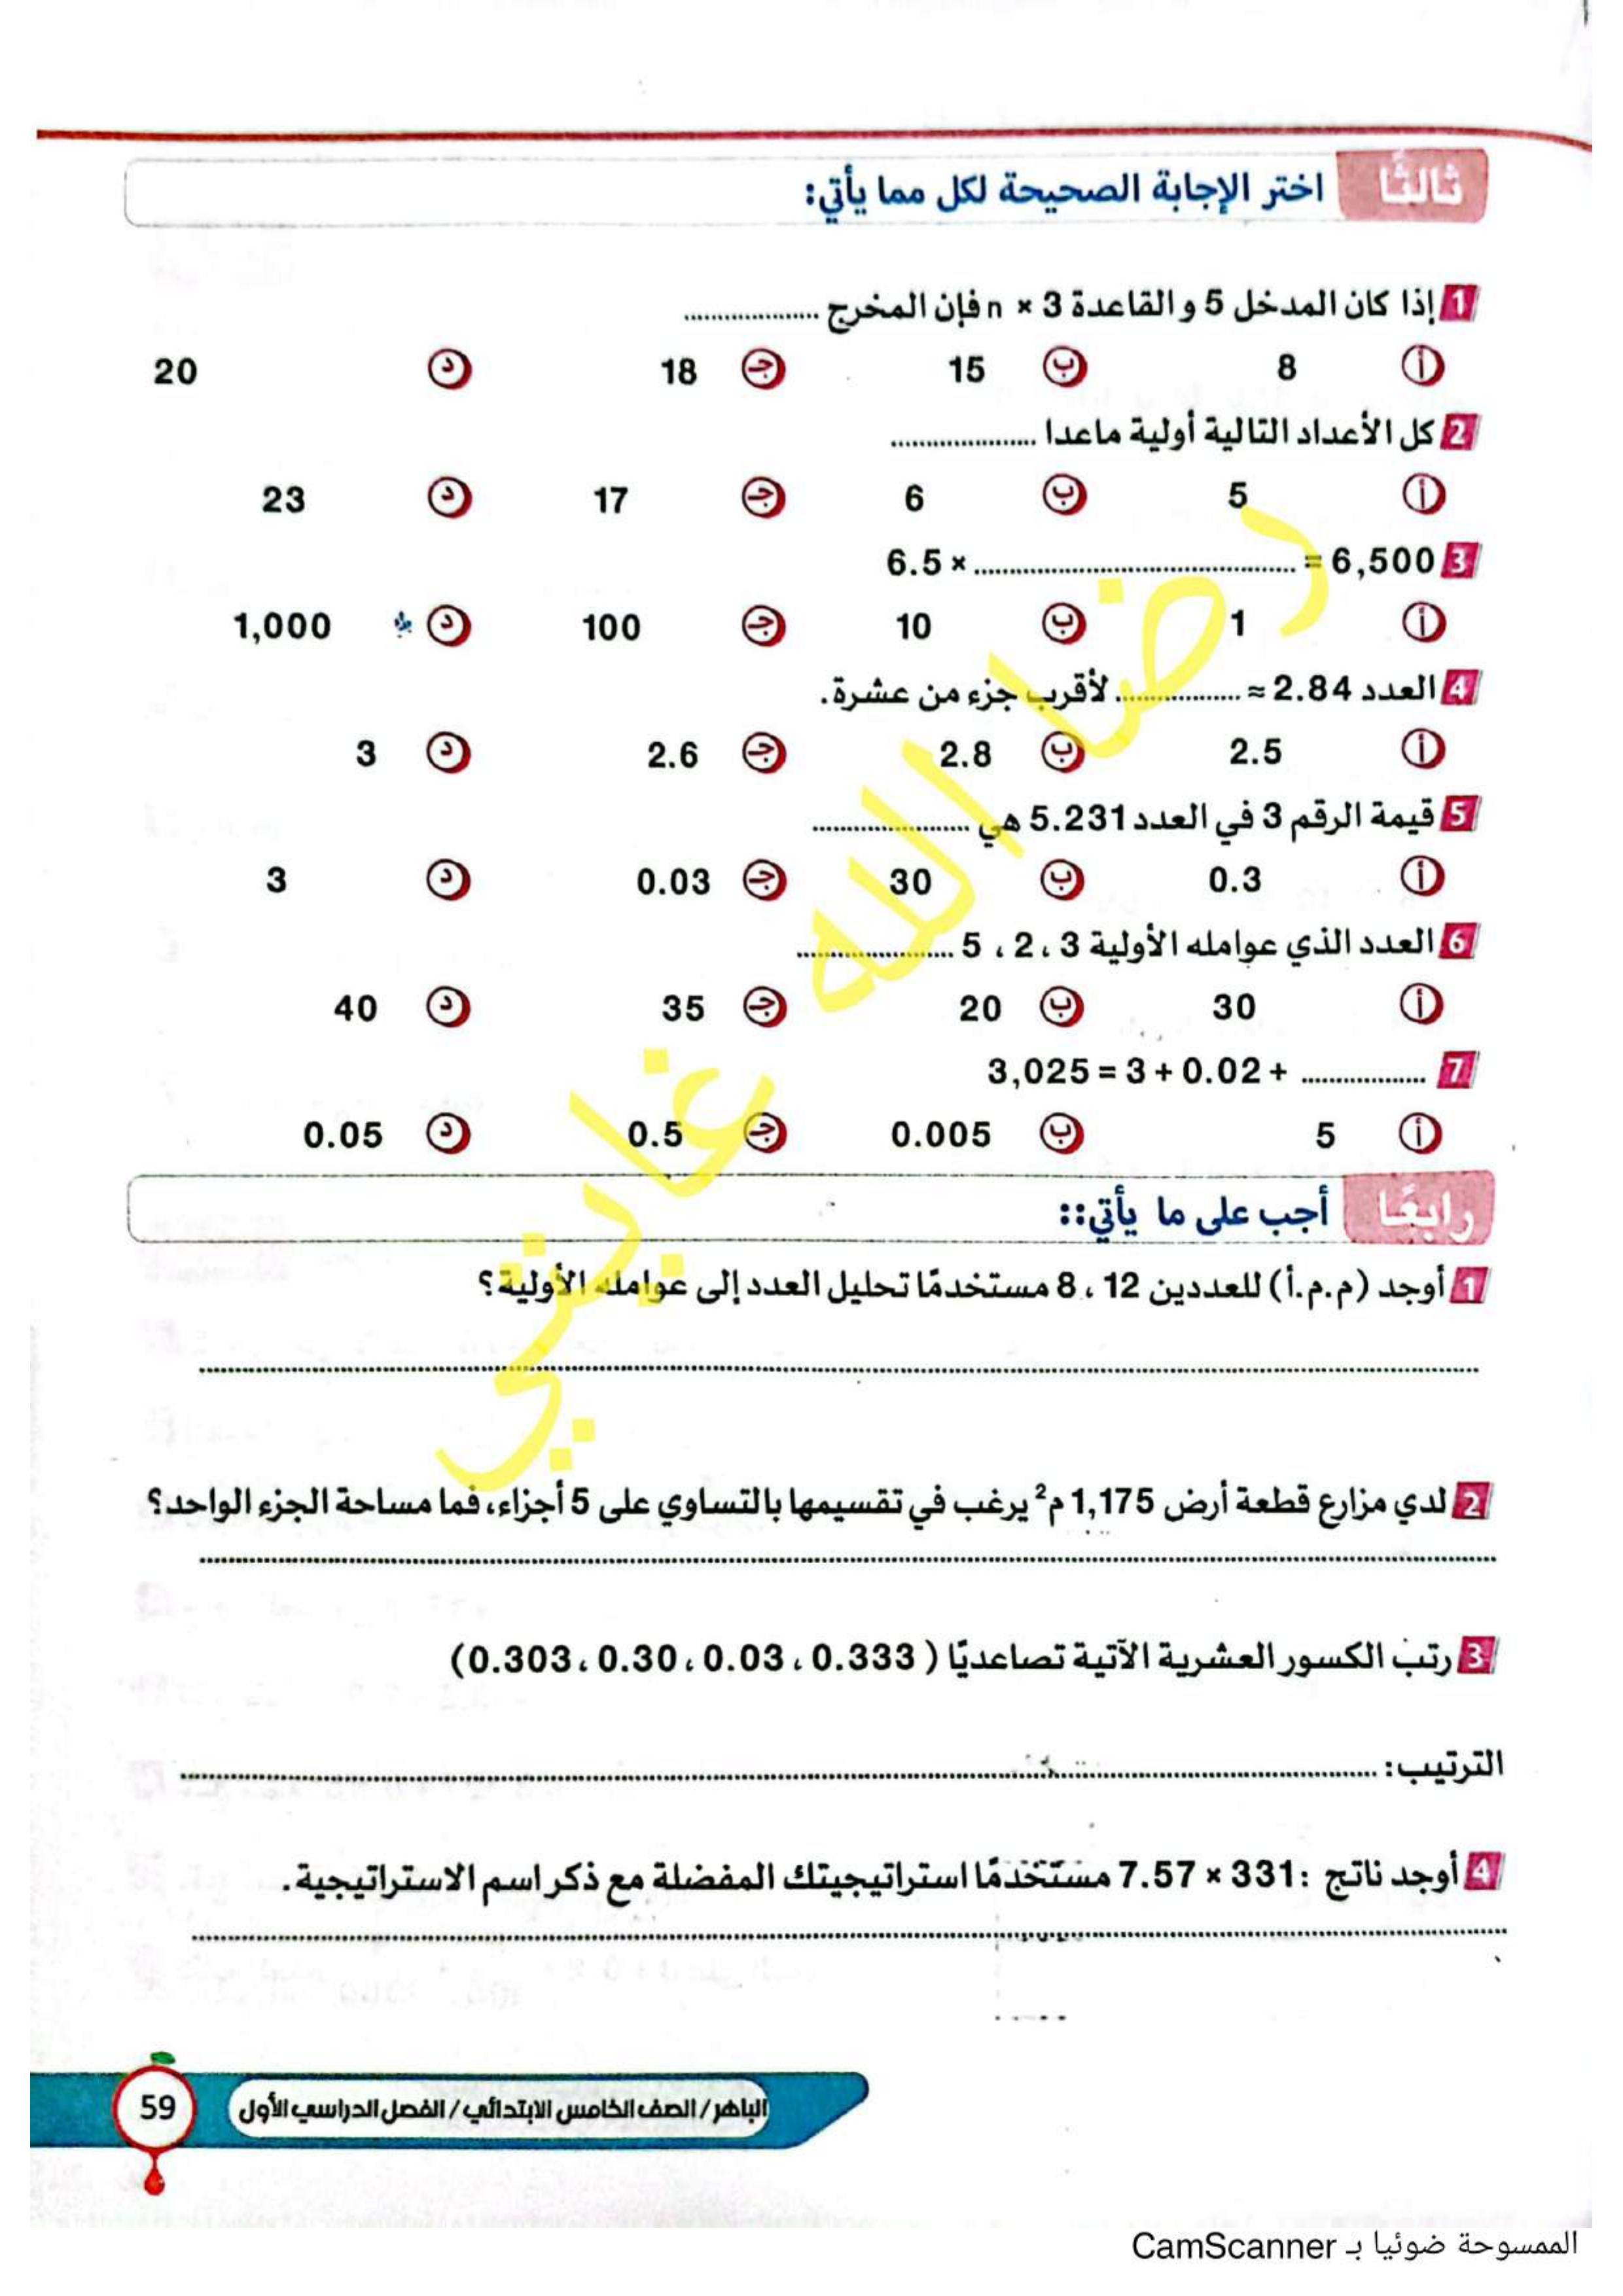 ثالثًا اختر الإجابة الصحيحة لكل مما يأتي:
1 إذا كان المدخل 5 و القاعدة n × 3 فإن المخرج ..................
أ 8 ب 15 ج 18 د 20
2 كل الأعداد التالية أولية ماعدا ..................
أ 5 ب 6 ج 17 د 23
3 6.5 × .................. = 6,500
أ 1 ب 10 ج 100 د 1,000
4 العدد 2.84 ≈ .................. لأقرب جزء من عشرة.
أ 2.5 ب 2.8 ج 2.6 د 3
5 قيمة الرقم 3 في العدد 5.231 هي ..................
أ 0.3 ب 30 ج 0.03 د 3
6 العدد الذي عوامله الأولية 3 ، 2 ، 5 ..................
أ 30 ب 20 ج 35 د 40
7 3,025 = 3 + 0.02 + ..................
أ 5 ب 0.005 ج 0.5 د 0.05
رابعًا أجب على ما يأتي::
1 أوجد (م.م.أ) للعددين 12 ، 8 مستخدمًا تحليل العدد إلى عوامله الأولية؟
2 لدي مزارع قطعة أرض 1,175 م² يرغب في تقسيمها بالتساوي على 5 أجزاء، فما مساحة الجزء الواحد؟
3 رتب الكسور العشرية الآتية تصاعديًا ( 0.333 ، 0.03 ، 0.30 ، 0.303)
الترتيب: ..................
4 أوجد ناتج : 331 × 7.57 مستخدمًا استراتيجيتك المفضلة مع ذكر اسم الاستراتيجية.
الباهر / الصف الخامس الابتدائي / الفصل الدراسي الأول
59
الممسوحة ضوئيا بـ CamScanner